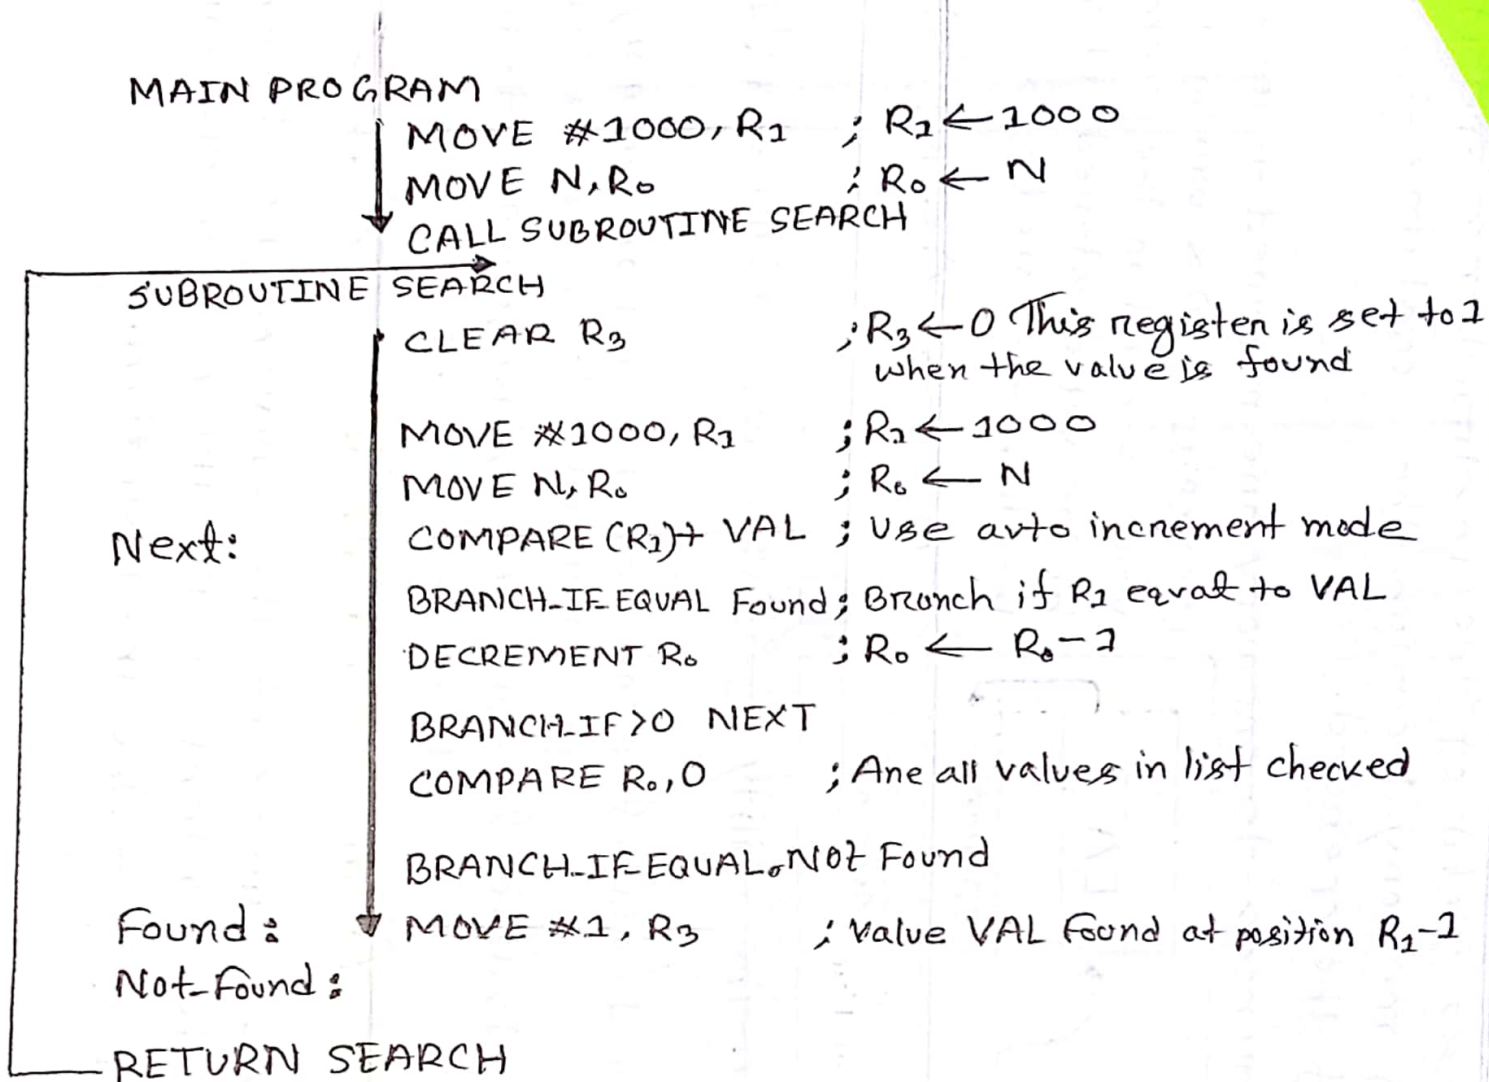 MAIN PROGRAM
MOVE #1000, R1 ; R1 ← 1000
MOVE N, R0 ; R0 ← N
CALL SUBROUTINE SEARCH
SUBROUTINE SEARCH
CLEAR R3 ; R3 ← 0 This register is set to 1
when the value is found
MOVE #1000, R1 ; R1 ← 1000
MOVE N, R0 ; R0 ← N
Next: COMPARE (R1)+ VAL ; Use auto increment mode
BRANCH_IF EQUAL Found ; Branch if R1 equal to VAL
DECREMENT R0 ; R0 ← R0-1
BRANCH_IF >0 NEXT
COMPARE R0, 0 ; Are all values in list checked
BRANCH_IF EQUAL, NOt Found
Found : MOVE #1, R3 ; Value VAL found at position R1-1
Not_found :
RETURN SEARCH